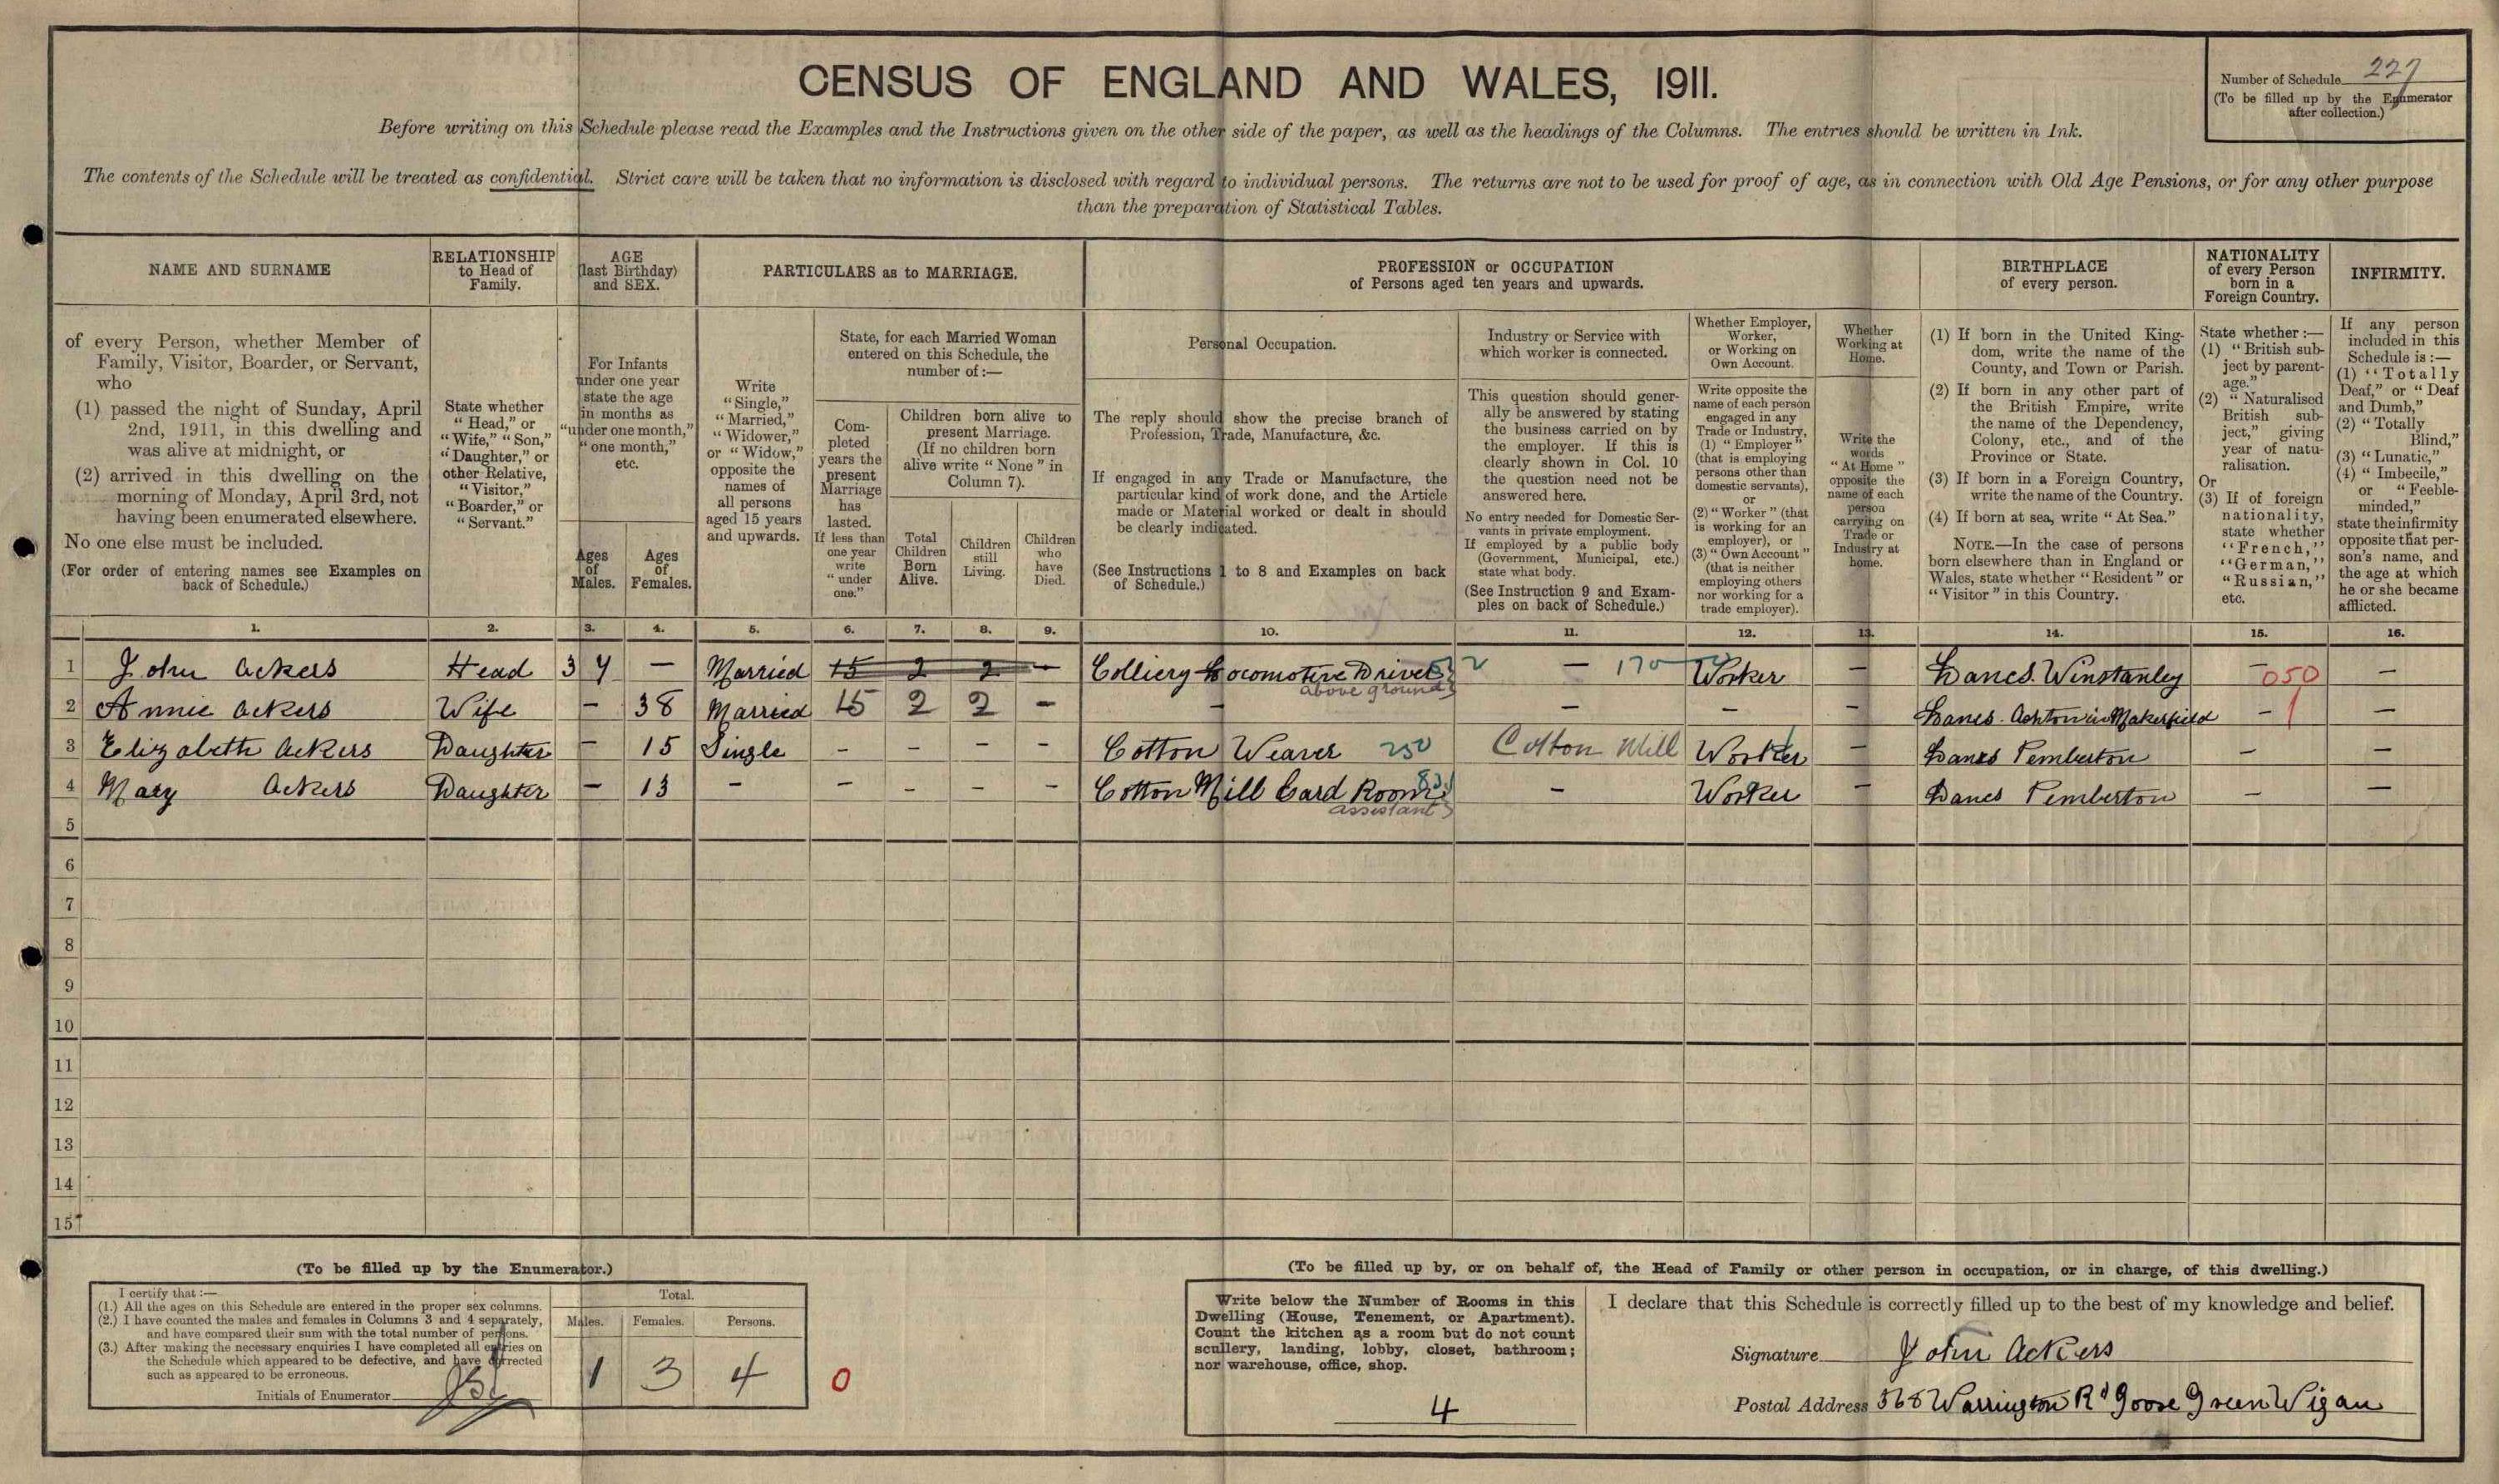 CENSUS OF ENGLAND AND WALES, 1911.
Number of Schedule 227
(To be filled up by the Enumerator
after collection.)
Before writing on this Schedule please read the Examples and the Instructions given on the other side of the paper, as well as the headings of the Columns. The entries should be written in Ink.
The contents of the Schedule will be treated as confidential. Strict care will be taken that no information is disclosed with regard to individual persons. The returns are not to be used for proof of age, as in connection with Old Age Pensions, or for any other purpose
than the preparation of Statistical Tables.
NAME AND SURNAME
of every Person, whether Member of
Family, Visitor, Boarder, or Servant,
who
(1) passed the night of Sunday, April
2nd, 1911, in this dwelling and
was alive at midnight, or
(2) arrived in this dwelling on the
morning of Monday, April 3rd, not
having been enumerated elsewhere.
No one else must be included.
(For order of entering names see Examples on
back of Schedule.)
RELATIONSHIP
to Head of
Family.
State whether
"Head," or
"Wife," "Son,"
"Daughter," or
other Relative,
"Visitor,"
"Boarder," or
"Servant."
AGE
(last Birthday)
and SEX.
For Infants
under one year
state the age
in months as
"under one month,"
"one month,"
etc.
Ages
of
Males.
Ages
of
Females.
PARTICULARS as to MARRIAGE.
Write
"Single,"
"Married,"
"Widower,"
or "Widow,"
opposite the
names of
all persons
aged 15 years
and upwards.
State, for each Married Woman
entered on this Schedule, the
number of :—
Com-
pleted
years the
present
Marriage
has
lasted.
If less than
one year
write
"under
one."
Children born alive to
present Marriage.
(If no children born
alive write "None" in
Column 7).
Total
Children
Born
Alive.
Children
still
Living.
Children
who
have
Died.
PROFESSION or OCCUPATION
of Persons aged ten years and upwards.
Personal Occupation.
The reply should show the precise branch of
Profession, Trade, Manufacture, &c.
If engaged in any Trade or Manufacture, the
particular kind of work done, and the Article
made or Material worked or dealt in should
be clearly indicated.
(See Instructions 1 to 8 and Examples on back
of Schedule.)
Industry or Service with
which worker is connected.
This question should gener-
ally be answered by stating
the business carried on by
the employer. If this is
clearly shown in Col. 10
the question need not be
answered here.
No entry needed for Domestic Ser-
vants in private employment.
If employed by a public body
(Government, Municipal, etc.)
state what body.
(See Instruction 9 and Exam-
ples on back of Schedule.)
Whether Employer,
Worker,
or Working on
Own Account.
Write opposite the
name of each person
engaged in any
Trade or Industry,
(1) "Employer"
(that is employing
persons other than
domestic servants),
or
(2) "Worker" (that
is working for an
employer), or
(3) "Own Account"
(that is neither
employing others
nor working for a
trade employer).
Whether
Working at
Home.
Write the
words
"At Home"
opposite the
name of each
person
carrying on
Trade or
Industry at
home.
BIRTHPLACE
of every person.
(1) If born in the United King-
dom, write the name of the
County, and Town or Parish.
(2) If born in any other part of
the British Empire, write
the name of the Dependency,
Colony, etc., and of the
Province or State.
(3) If born in a Foreign Country,
write the name of the Country.
(4) If born at sea, write "At Sea."
NOTE.—In the case of persons
born elsewhere than in England or
Wales, state whether "Resident" or
"Visitor" in this Country.
NATIONALITY
of every Person
born in a
Foreign Country.
State whether :—
(1) "British sub-
ject by parent-
age."
(2) "Naturalised
British sub-
ject," giving
year of natu-
ralisation.
Or
(3) If of foreign
nationality,
state whether
"French,"
"German,"
"Russian,"
etc.
INFIRMITY.
If any person
included in this
Schedule is :—
(1) "Totally
Deaf," or "Deaf
and Dumb,"
(2) "Totally
Blind,"
(3) "Lunatic,"
(4) "Imbecile,"
or "Feeble-
minded,"
state the infirmity
opposite that per-
son's name, and
the age at which
he or she became
afflicted.
1. 2. 3. 4. 5. 6. 7. 8. 9. 10. 11. 12. 13. 14. 15. 16.
1 John Ackers Head 37 — Married 15 2 2 — Colliery Locomotive Driver — 170 Worker — Lancs. Winstanley — 050 —
above ground
2 Annie Ackers Wife — 38 Married 15 2 2 — — — — — Lancs. Ashton in Makerfield — 1 —
3 Elizabeth Ackers Daughter — 15 Single — — — — Cotton Weaver 250 Cotton Mill Worker — Lancs Pemberton — —
4 Mary Ackers Daughter — 13 — — — — — Cotton Mill Card Room — Worker — Lancs Pemberton — —
assistant
5
6
7
8
9
10
11
12
13
14
15
(To be filled up by the Enumerator.)
I certify that :—
(1.) All the ages on this Schedule are entered in the proper sex columns.
(2.) I have counted the males and females in Columns 3 and 4 separately,
and have compared their sum with the total number of persons.
(3.) After making the necessary enquiries I have completed all entries on
the Schedule which appeared to be defective, and have corrected
such as appeared to be erroneous.
Initials of Enumerator
Total.
Males. Females. Persons.
1 3 4 0
(To be filled up by, or on behalf of, the Head of Family or other person in occupation, or in charge, of this dwelling.)
Write below the Number of Rooms in this
Dwelling (House, Tenement, or Apartment).
Count the kitchen as a room but do not count
scullery, landing, lobby, closet, bathroom;
nor warehouse, office, shop.
4
I declare that this Schedule is correctly filled up to the best of my knowledge and belief.
Signature John Ackers
Postal Address 368 Warrington Rd Goose Green Wigan